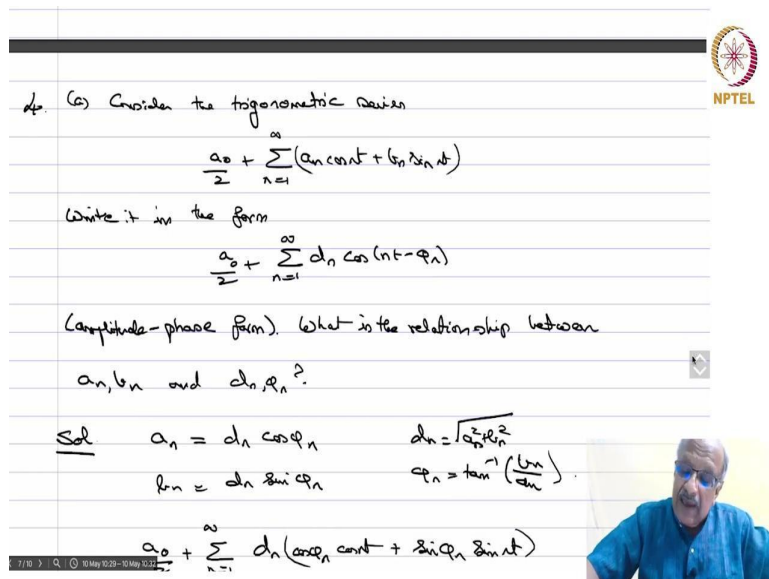 NPTEL
4. (a) Consider the trigonometric series
a₀/2 + ∑_{n=1}^{∞} (aₙ cos nt + bₙ sin nt)
Write it in the form
a₀/2 + ∑_{n=1}^{∞} dₙ cos (nt - φₙ)
(amplitude-phase form). What is the relationship between
aₙ, bₙ and dₙ, φₙ?
Sol aₙ = dₙ cos φₙ dₙ = √(aₙ² + bₙ²)
bₙ = dₙ sin φₙ φₙ = tan⁻¹ (bₙ/aₙ).
a₀/2 + ∑_{n=1}^{∞} dₙ (cos φₙ cos nt + sin φₙ sin nt)
7/10 10 May 10:29 – 10 May 10:32